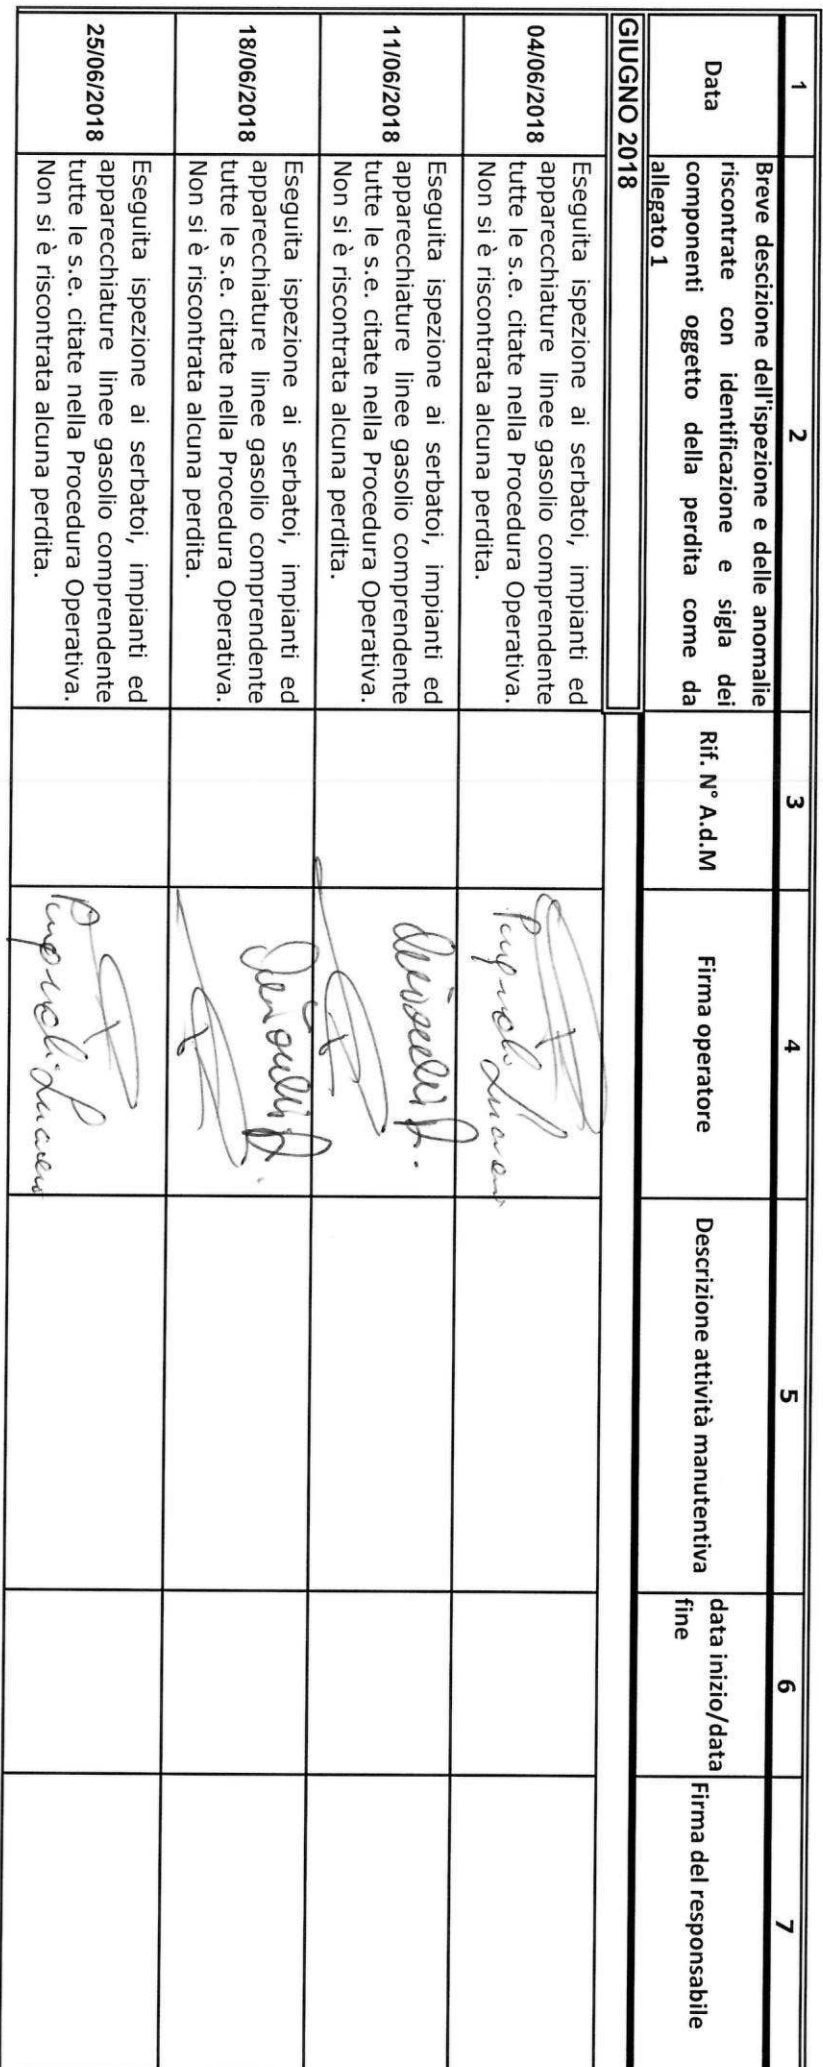 1 2 3 4 5 6 7
Data
Breve descizione dell'ispezione e delle anomalie
riscontrate con identificazione e sigla dei
componenti oggetto della perdita come da
allegato 1
Rif. N° A.d.M
Firma operatore
Descrizione attività manutentiva
data inizio/data
fine
Firma del responsabile
GIUGNO 2018
04/06/2018
Eseguita ispezione ai serbatoi, impianti ed
apparecchiature linee gasolio comprendente
tutte le s.e. citate nella Procedura Operativa.
Non si è riscontrata alcuna perdita.
11/06/2018
Eseguita ispezione ai serbatoi, impianti ed
apparecchiature linee gasolio comprendente
tutte le s.e. citate nella Procedura Operativa.
Non si è riscontrata alcuna perdita.
18/06/2018
Eseguita ispezione ai serbatoi, impianti ed
apparecchiature linee gasolio comprendente
tutte le s.e. citate nella Procedura Operativa.
Non si è riscontrata alcuna perdita.
25/06/2018
Eseguita ispezione ai serbatoi, impianti ed
apparecchiature linee gasolio comprendente
tutte le s.e. citate nella Procedura Operativa.
Non si è riscontrata alcuna perdita.